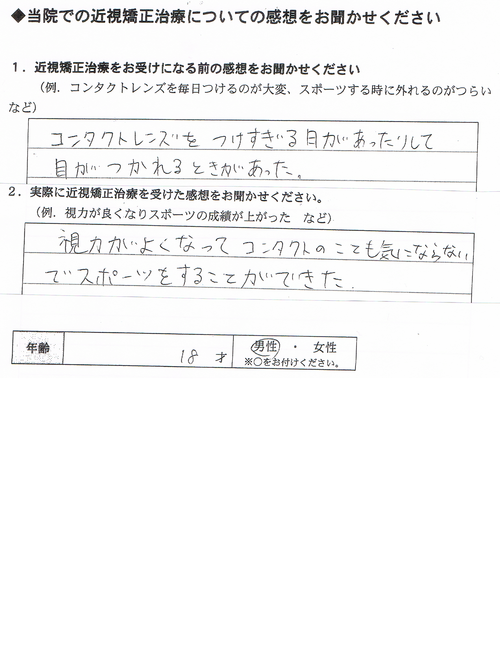 ◆当院での近視矯正治療についての感想をお聞かせください
1．近視矯正治療をお受けになる前の感想をお聞かせください
（例．コンタクトレンズを毎日つけるのが大変、スポーツする時に外れるのがつらい
など）
コンタクトレンズを つけすぎる日があったりして
目が つかれるときがあった。
2．実際に近視矯正治療を受けた感想をお聞かせください。
（例．視力が良くなりスポーツの成績が上がった　など）
視力がよくなって コンタクトのことも気にならない
でスポーツをすることができた.
年齢 18 才 男性 ・ 女性
※○をお付けください。